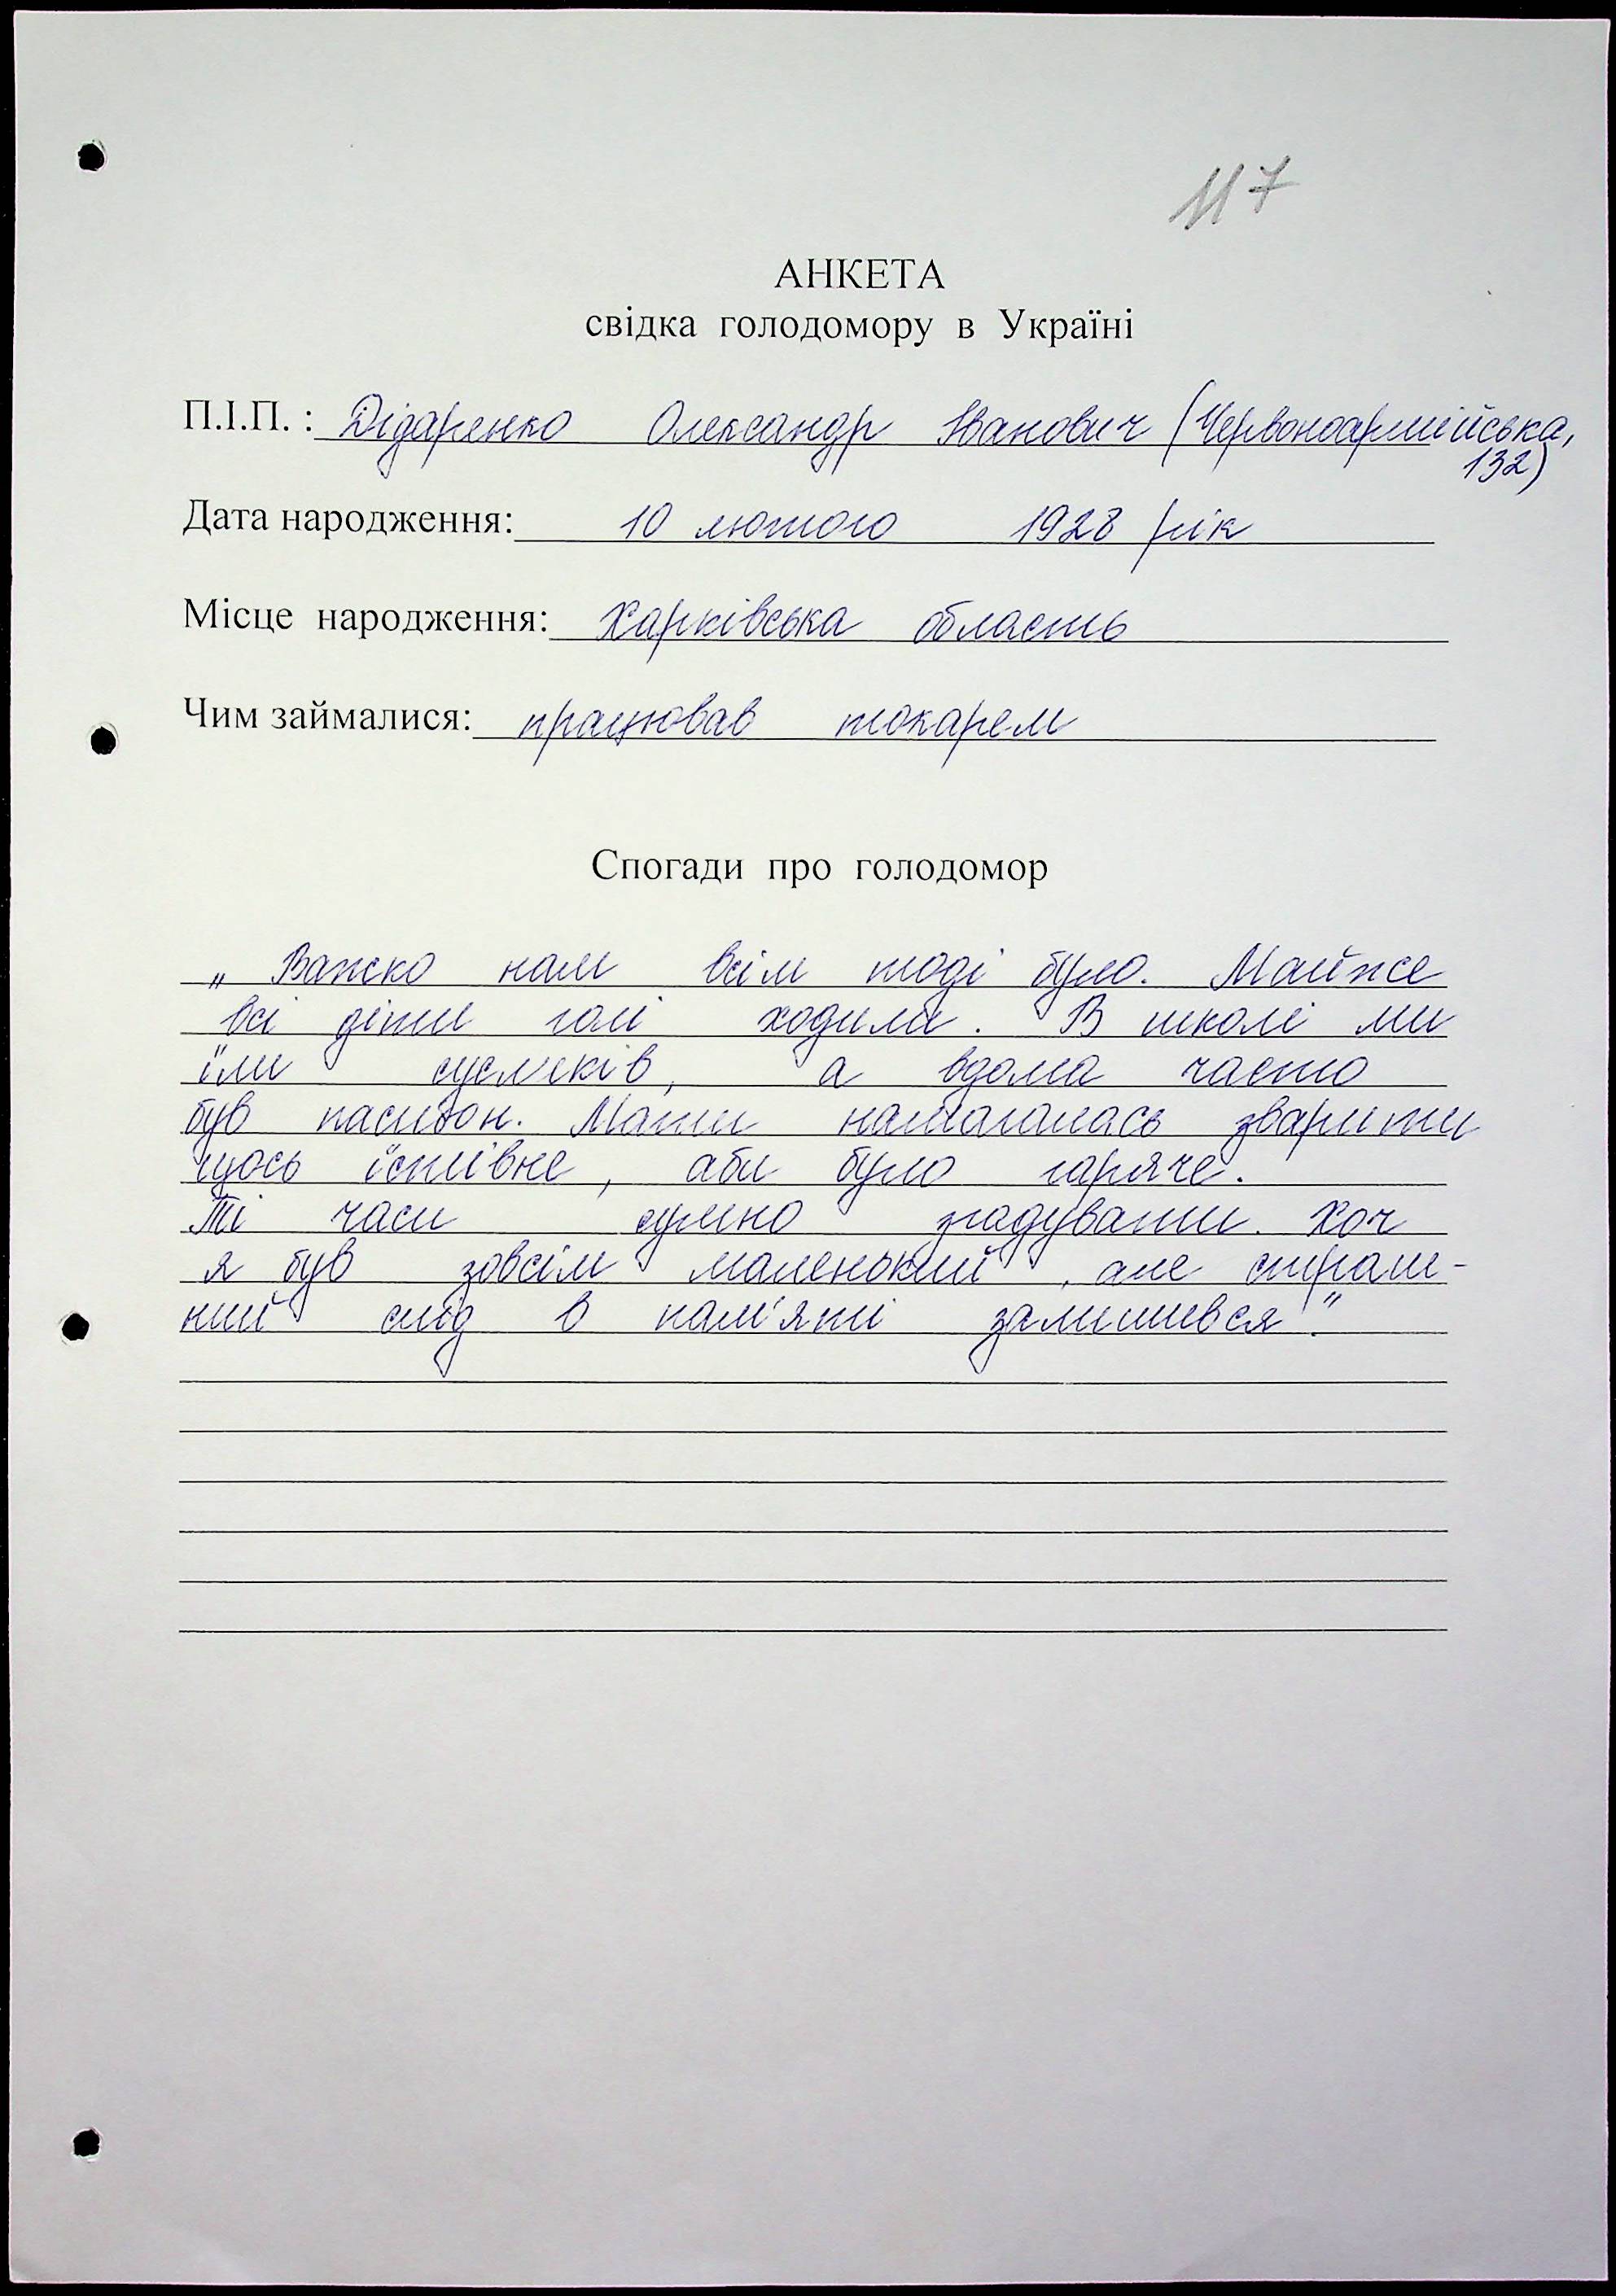 117
АНКЕТА
свідка голодомору в Україні
П.І.П. : Дідаренко Олександр Іванович (Червоноармійська,
132)
Дата народження: 10 лютого 1928 рік
Місце народження: Харківська область
Чим займалися: працював токарем
Спогади про голодомор
„ Важко нам всім тоді було. Майже
всі діти голі ходили. В школі ми
їли сусліків, а вдома часто
був пасльон. Мати намагалась зварити
щось їстівне, аби було гаряче.
Ті часи сумно згадувати. Хоч
я був зовсім маленький, але страш-
ний слід в пам'яті залишився".